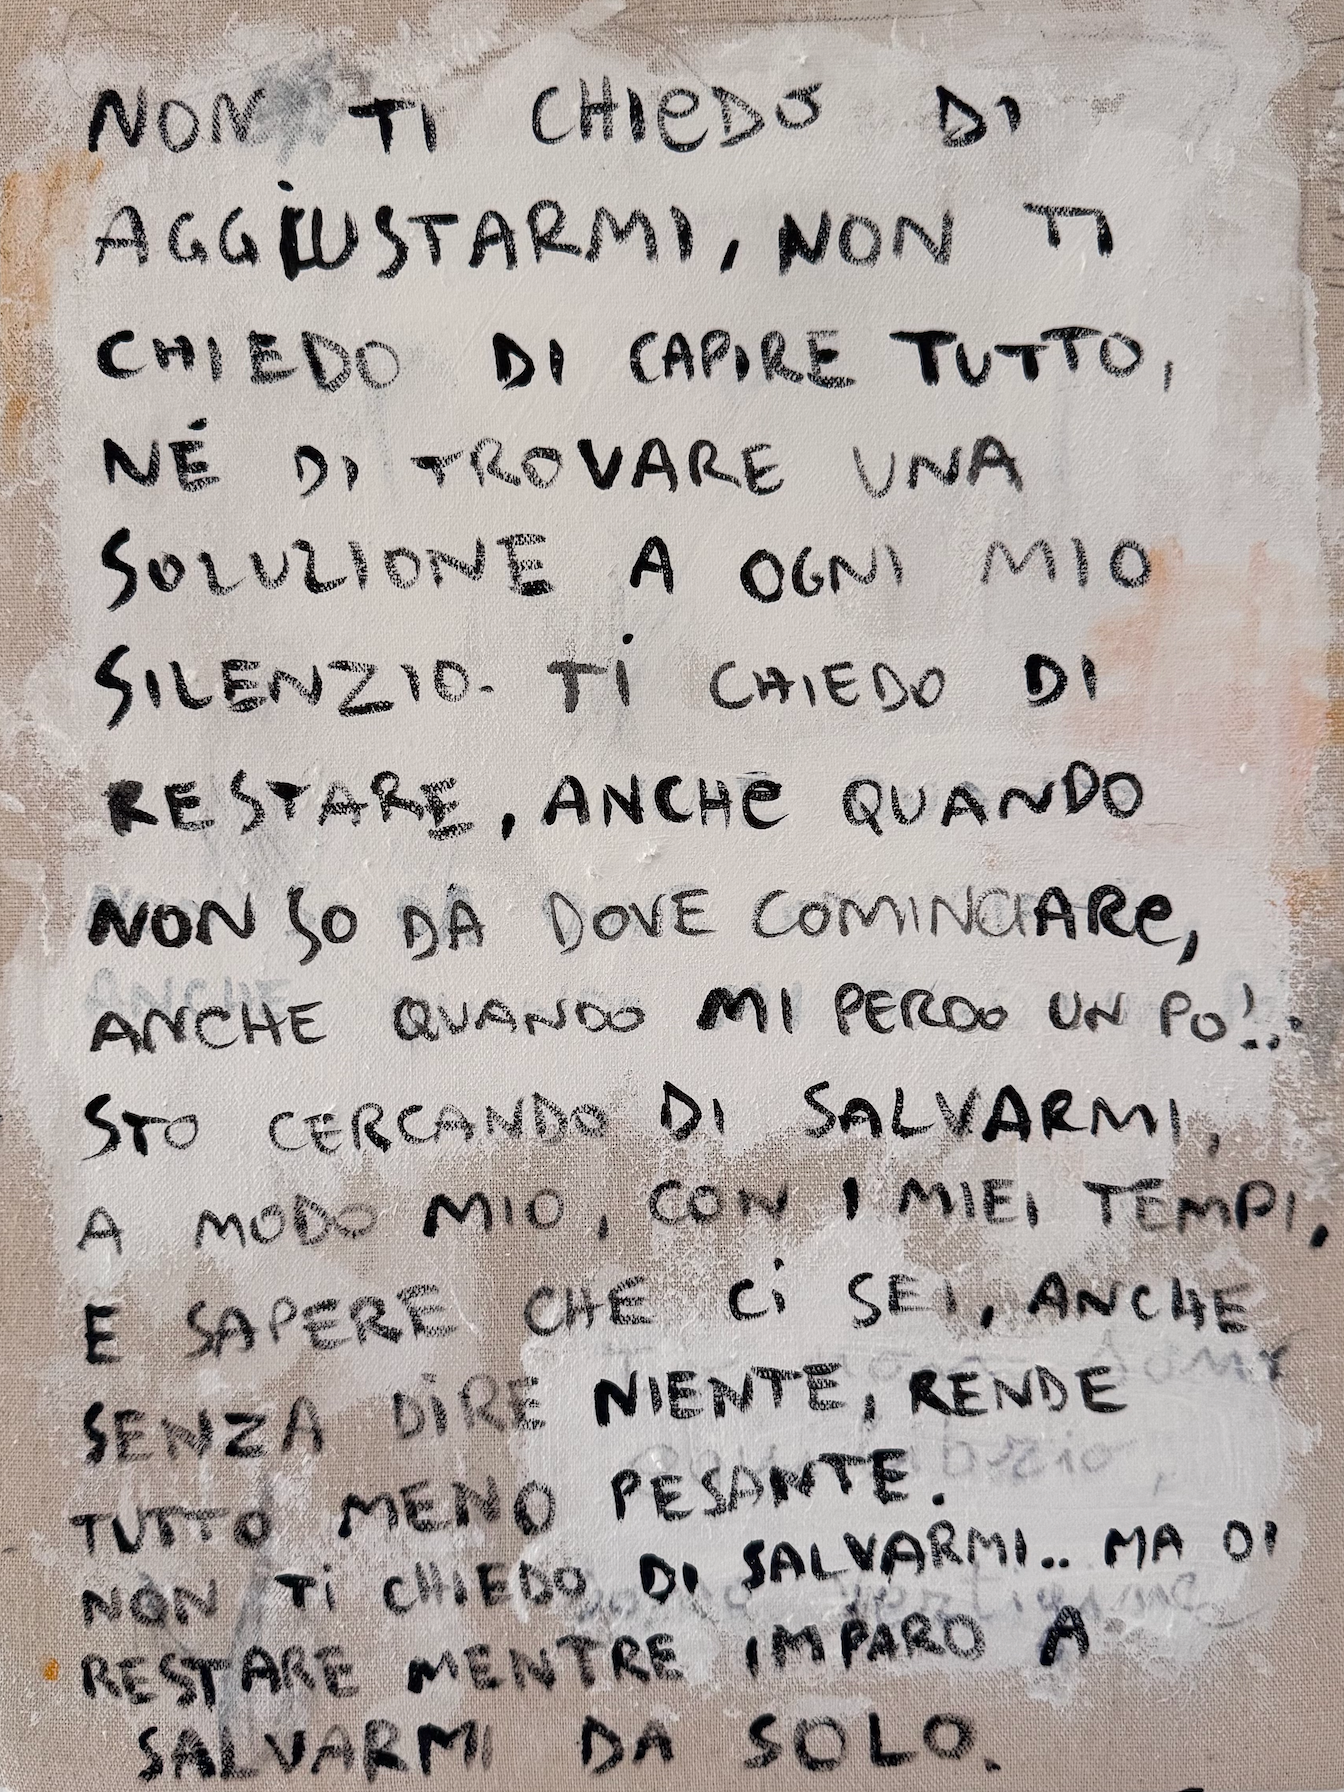 NON TI CHIEDO DI
AGGIUSTARMI, NON TI
CHIEDO DI CAPIRE TUTTO,
NÉ DI TROVARE UNA
SOLUZIONE A OGNI MIO
SILENZIO. TI CHIEDO DI
RESTARE, ANCHE QUANDO
NON SO DA DOVE COMINCIARE,
ANCHE QUANDO MI PERDO UN PO'..
STO CERCANDO DI SALVARMI,
A MODO MIO, CON I MIEI TEMPI,
E SAPERE CHE CI SEI, ANCHE
SENZA DIRE NIENTE, RENDE
TUTTO MENO PESANTE.
NON TI CHIEDO DI SALVARMI.. MA DI
RESTARE MENTRE IMPARO A
SALVARMI DA SOLO.